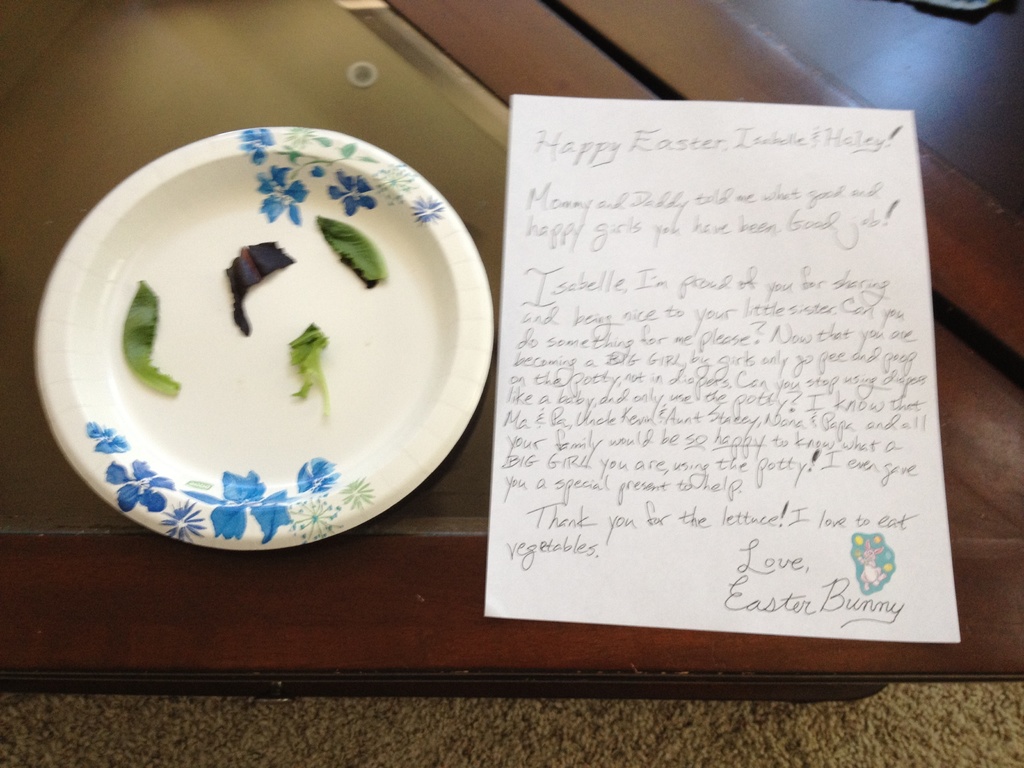 Happy Easter, Isabelle & Haley!
Mommy and Daddy told me what good and
happy girls you have been. Good job!
Isabelle, I'm proud of you for sharing
and being nice to your little sister. Can you
do something for me please? Now that you are
becoming a BIG GIRL, big girls only go pee and poop
on the potty, not in diapers. Can you stop using diapers
like a baby, and only use the potty? I know that
Ma & Pa, Uncle Kevin & Aunt Stacey, Nana & Papa, and all
your family would be so happy to know what a
BIG GIRL you are, using the potty! I even gave
you a special present to help.
Thank you for the lettuce! I love to eat
vegetables.
Love,
Easter Bunny